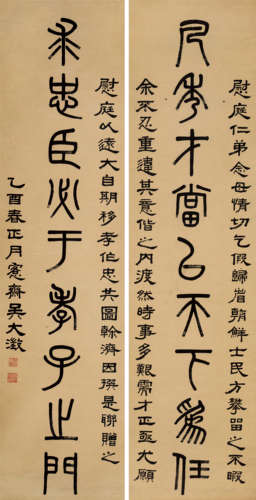 慰庭仁弟念母情切乞假歸省朝鮮士民方攀留之不暇
凡秀才當以天下爲任
余不忍重違其意偕之內渡然時事多艱需才正亟尤願
慰庭以遠大自期移孝作忠共圖幹濟因撰是聯贈之
求忠臣必于孝子之門
乙酉春正月愙齋吳大澂